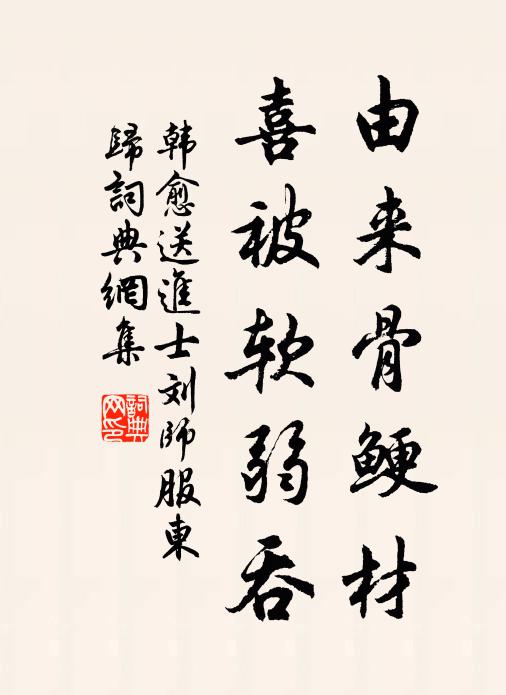 由来骨鲠材
喜被软弱吞
韩愈送進士刘師服東
歸詞典網集
詞典
网印